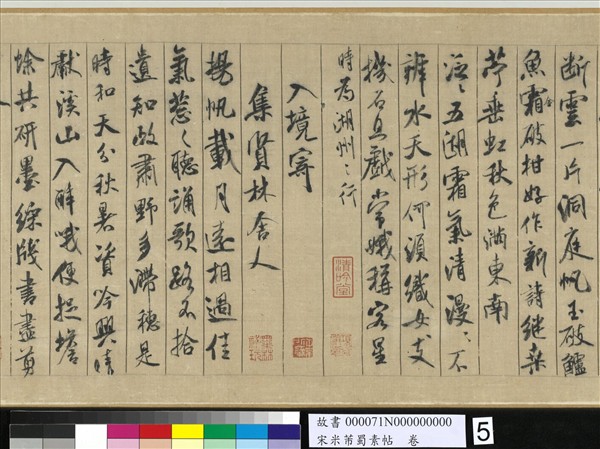 断雲一片洞庭帆玉破鱸
魚霜破柑好作新詩継桑
苧垂虹秋色滿東南
泛〻五湖霜氣清漫〻不
辨水天形何須織女支
機石且戲常娥稱客星
時為湖州之行
清吟堂
入境寄
集賢林舍人
揚帆載月遠相過佳
氣葱〻聽誦歌路不拾
遺知政肅野多滯穗是
時和天分秋暑資吟興晴
獻溪山入醉哦便捉蟾
蜍共研墨綵牋書盡剪
故書 000071N000000000
宋米芾蜀素帖 卷
5